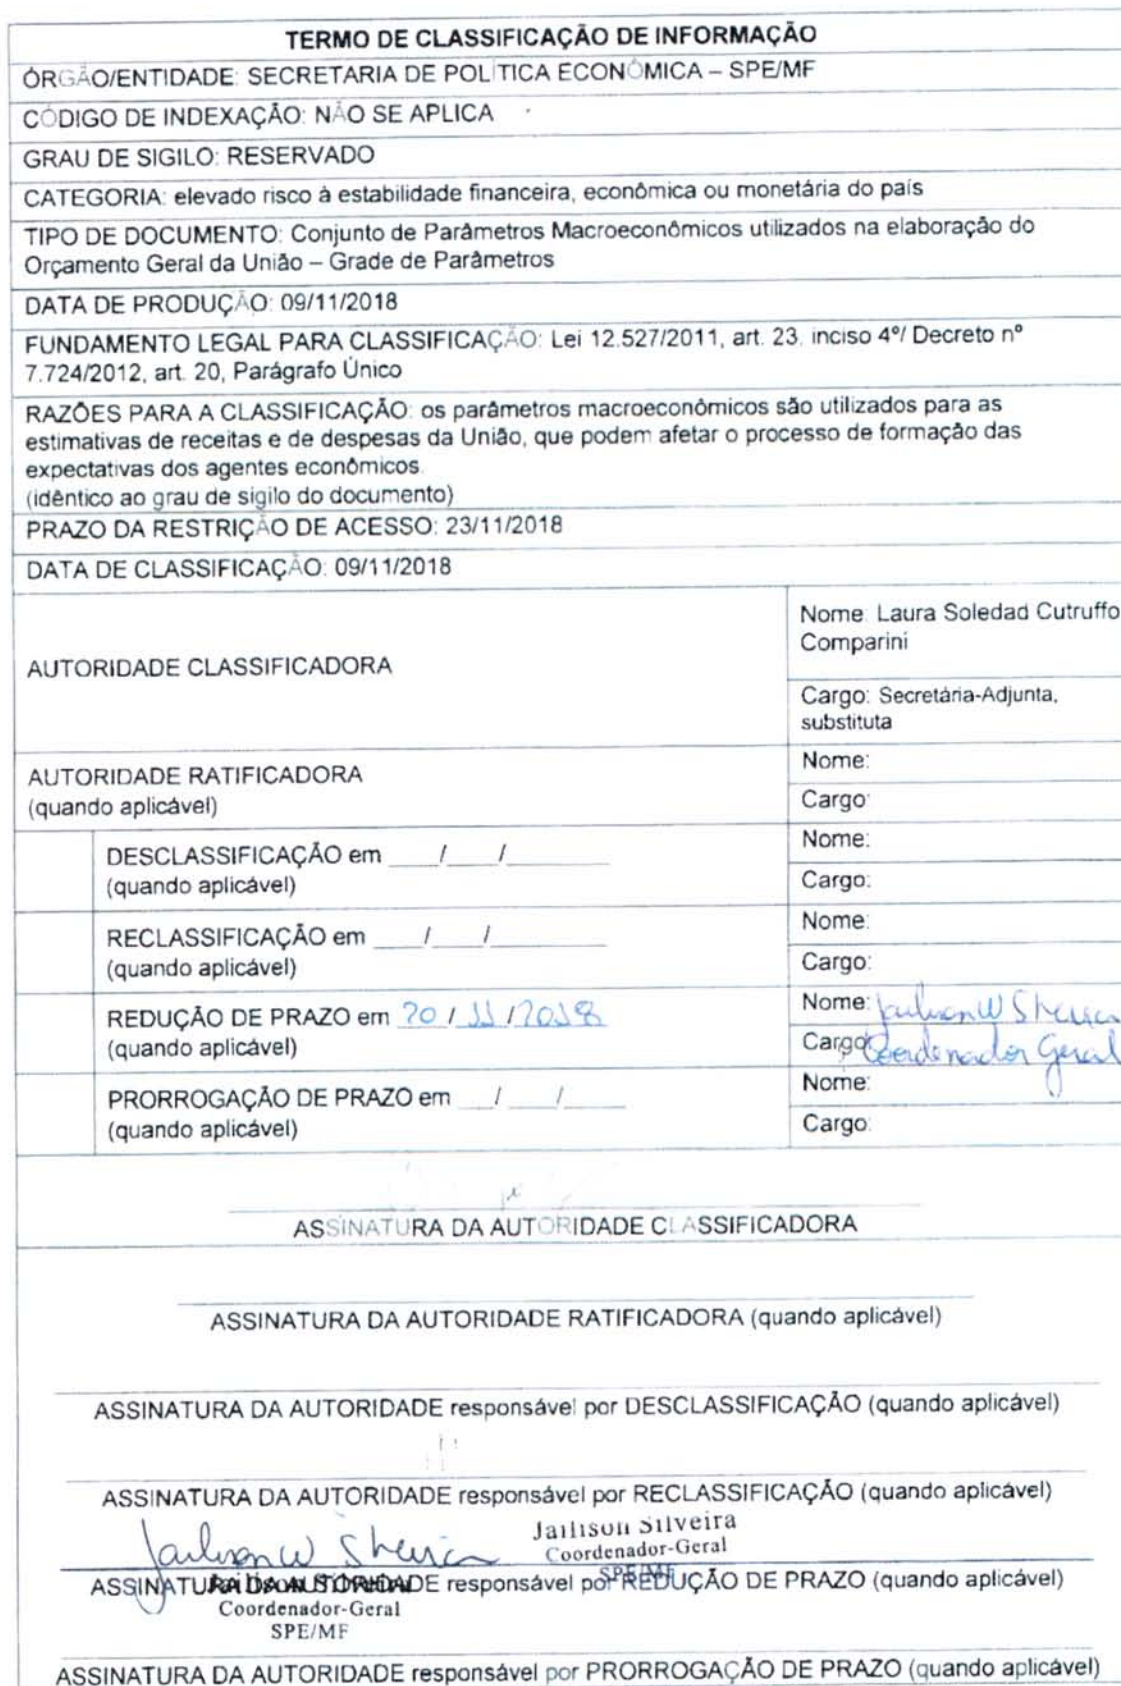 TERMO DE CLASSIFICAÇÃO DE INFORMAÇÃO
ÓRGÃO/ENTIDADE: SECRETARIA DE POLÍTICA ECONÔMICA – SPE/MF
CÓDIGO DE INDEXAÇÃO: NÃO SE APLICA
GRAU DE SIGILO: RESERVADO
CATEGORIA: elevado risco à estabilidade financeira, econômica ou monetária do país
TIPO DE DOCUMENTO: Conjunto de Parâmetros Macroeconômicos utilizados na elaboração do
Orçamento Geral da União – Grade de Parâmetros
DATA DE PRODUÇÃO: 09/11/2018
FUNDAMENTO LEGAL PARA CLASSIFICAÇÃO: Lei 12.527/2011, art. 23, inciso 4º/ Decreto nº
7.724/2012, art. 20, Parágrafo Único
RAZÕES PARA A CLASSIFICAÇÃO: os parâmetros macroeconômicos são utilizados para as
estimativas de receitas e de despesas da União, que podem afetar o processo de formação das
expectativas dos agentes econômicos.
(idêntico ao grau de sigilo do documento)
PRAZO DA RESTRIÇÃO DE ACESSO: 23/11/2018
DATA DE CLASSIFICAÇÃO: 09/11/2018
AUTORIDADE CLASSIFICADORA
Nome: Laura Soledad Cutruffo
Comparini
Cargo: Secretária-Adjunta,
substituta
AUTORIDADE RATIFICADORA
(quando aplicável)
Nome:
Cargo:
DESCLASSIFICAÇÃO em ___/___/______
(quando aplicável)
Nome:
Cargo:
RECLASSIFICAÇÃO em ___/___/______
(quando aplicável)
Nome:
Cargo:
REDUÇÃO DE PRAZO em 20/11/2018
(quando aplicável)
Nome: Jailison W Silveira
Cargo: Coordenador Geral
PRORROGAÇÃO DE PRAZO em ___/___/_____
(quando aplicável)
Nome:
Cargo:
ASSINATURA DA AUTORIDADE CLASSIFICADORA
ASSINATURA DA AUTORIDADE RATIFICADORA (quando aplicável)
ASSINATURA DA AUTORIDADE responsável por DESCLASSIFICAÇÃO (quando aplicável)
ASSINATURA DA AUTORIDADE responsável por RECLASSIFICAÇÃO (quando aplicável)
Jailison W Silveira
Jailison Silveira
Coordenador-Geral
SPE/MF
ASSINATURA DA AUTORIDADE responsável por REDUÇÃO DE PRAZO (quando aplicável)
Jailison Silveira
Coordenador-Geral
SPE/MF
ASSINATURA DA AUTORIDADE responsável por PRORROGAÇÃO DE PRAZO (quando aplicável)